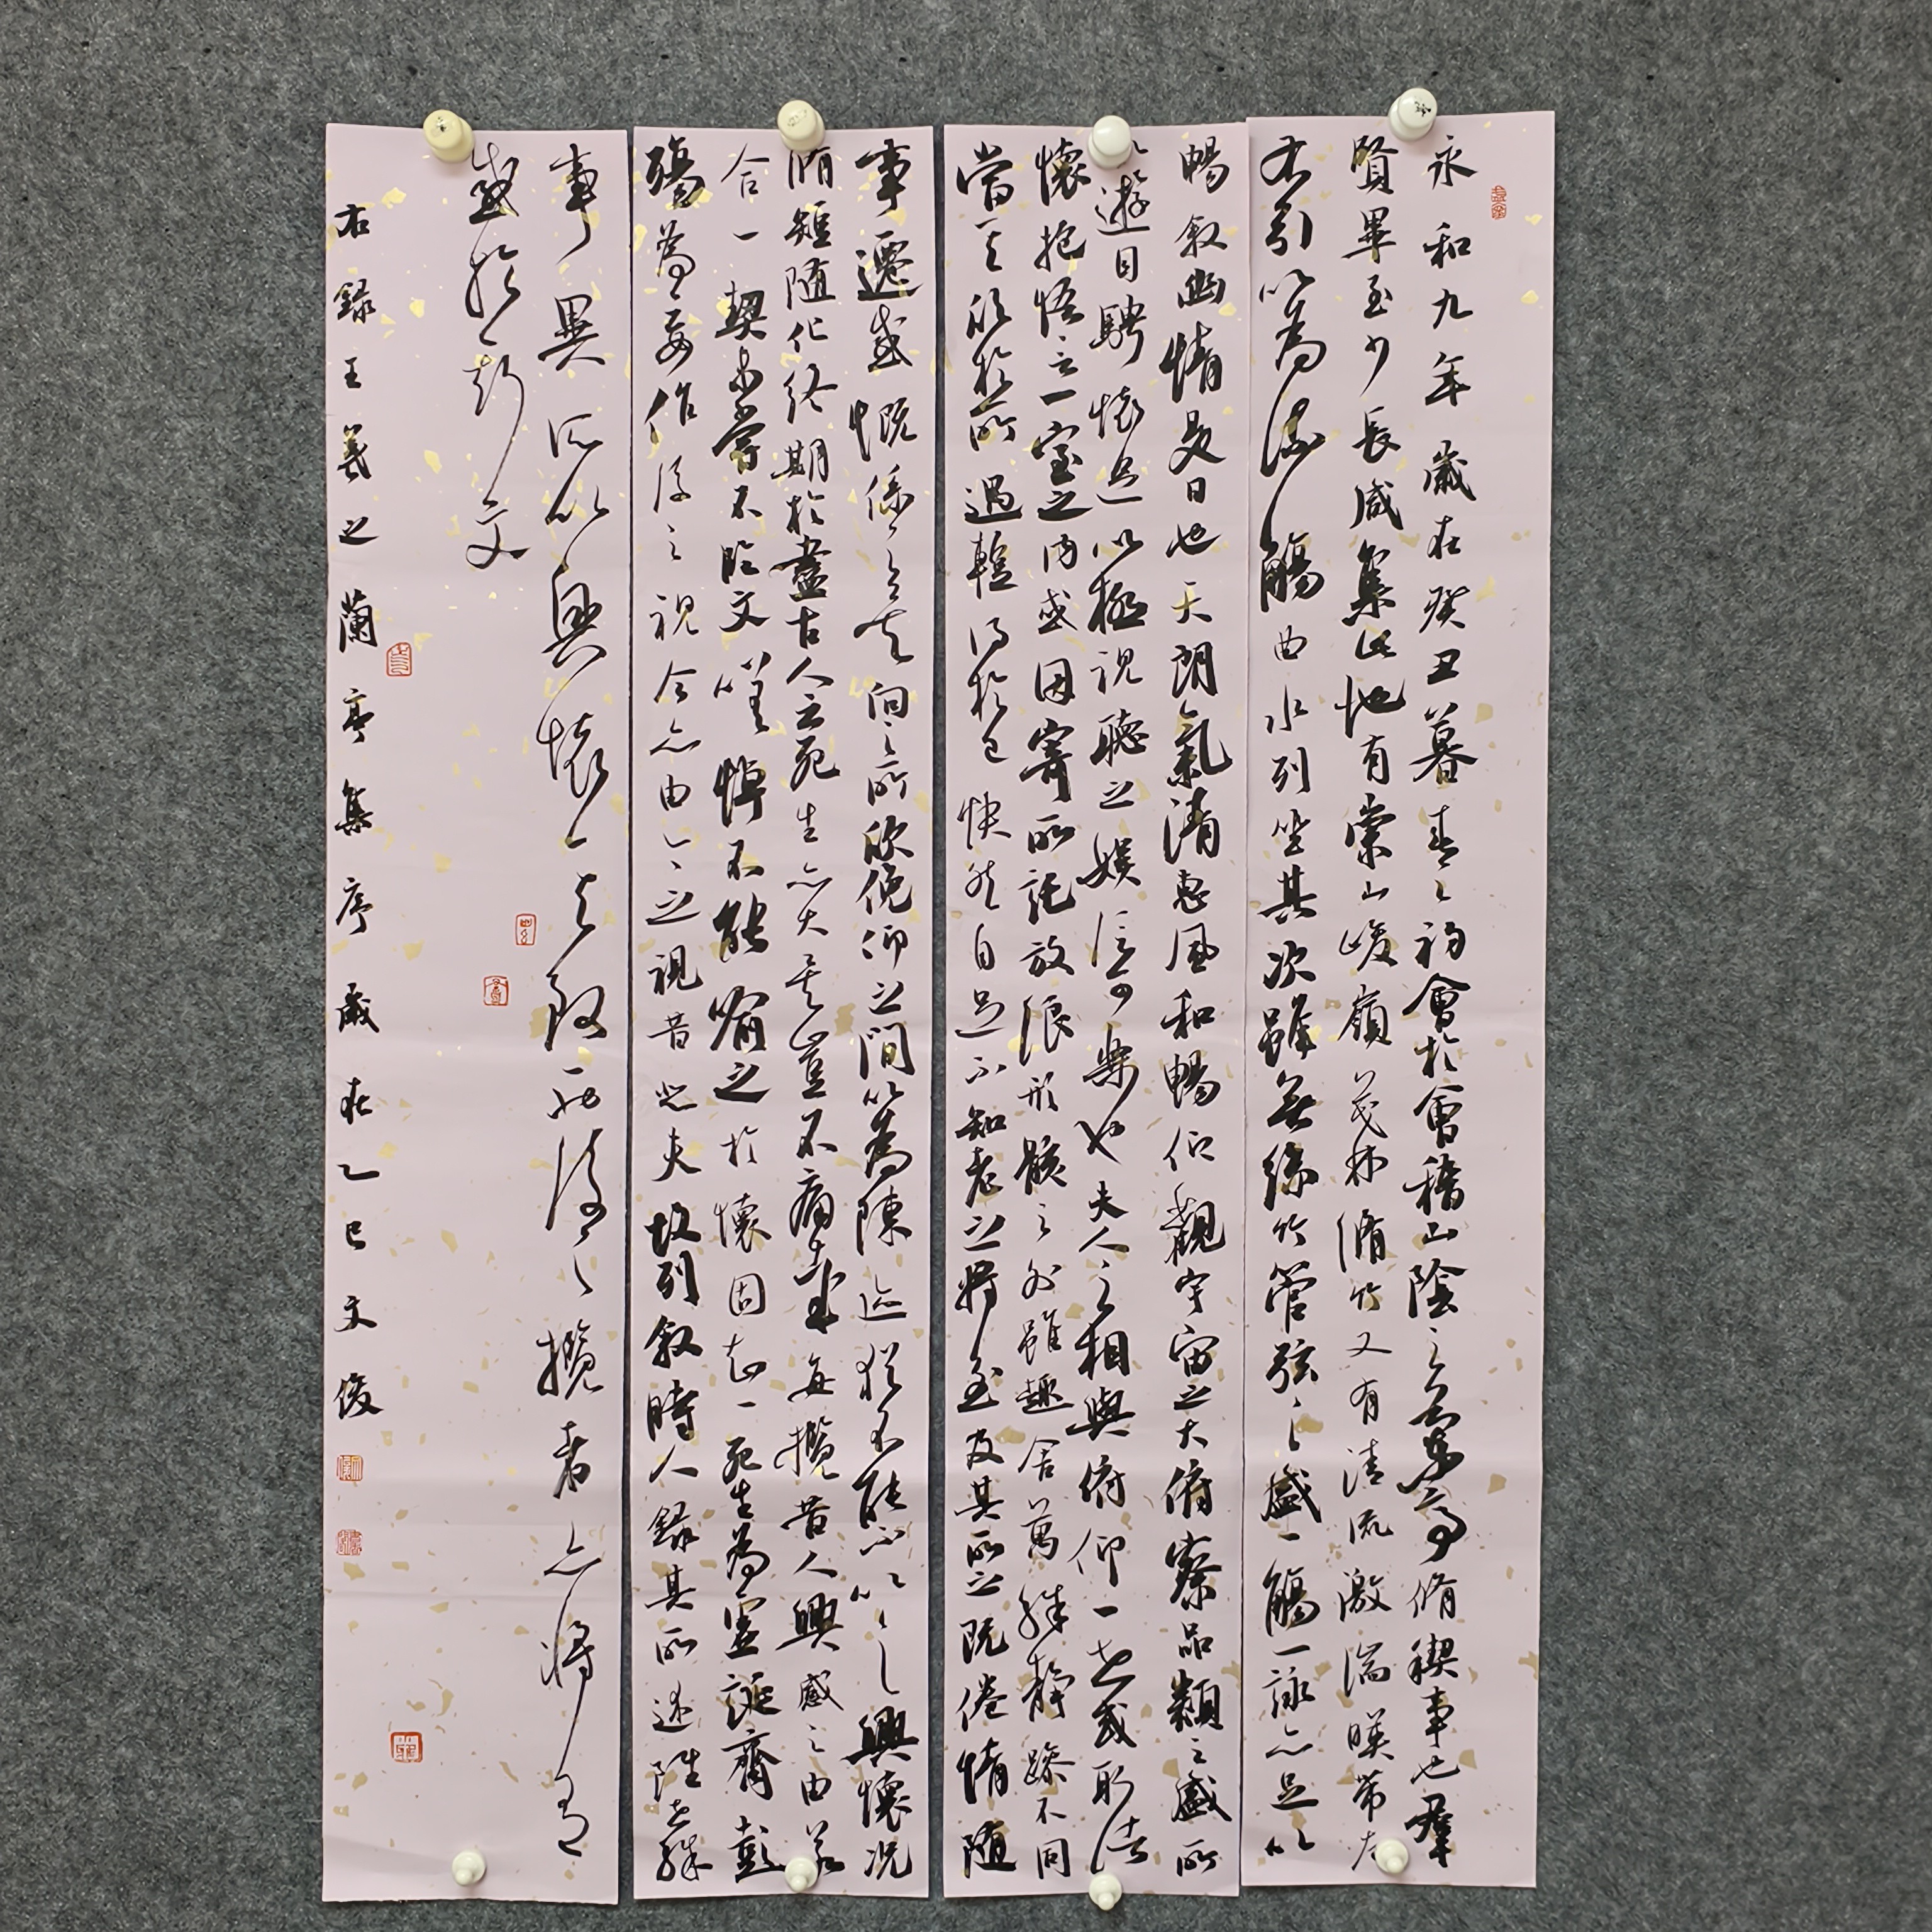 永和九年歲在癸丑暮春之初會於會稽山陰之蘭亭脩禊事也群
賢畢至少長咸集此地有崇山峻嶺茂林脩竹又有清流激湍暎帶左
右引以為流觴曲水列坐其次雖無絲竹管弦之盛一觴一詠亦足以
暢叙幽情是日也天朗氣清惠風和暢仰觀宇宙之大俯察品類之盛所
以遊目騁懷足以極視聽之娛信可樂也夫人之相與俯仰一世或取諸
懷抱悟言一室之内或因寄所託放浪形骸之外雖趣舍萬殊靜躁不同
當其欣於所遇暫得於己快然自足不知老之將至及其所之既倦情隨
事遷感慨係之矣向之所欣俛仰之間以為陳迹猶不能不以之興懷況
脩短隨化終期於盡古人云死生亦大矣豈不痛哉每攬昔人興感之由若
合一契未嘗不臨文嗟悼不能喻之於懷固知一死生為虛誕齊彭
殤為妄作後之視今亦由今之視昔悲夫故列叙時人錄其所述雖世殊
事異所以興懷其致一也後之攬者亦將有
感於斯文
右錄王羲之蘭亭集序歲在乙巳文俊